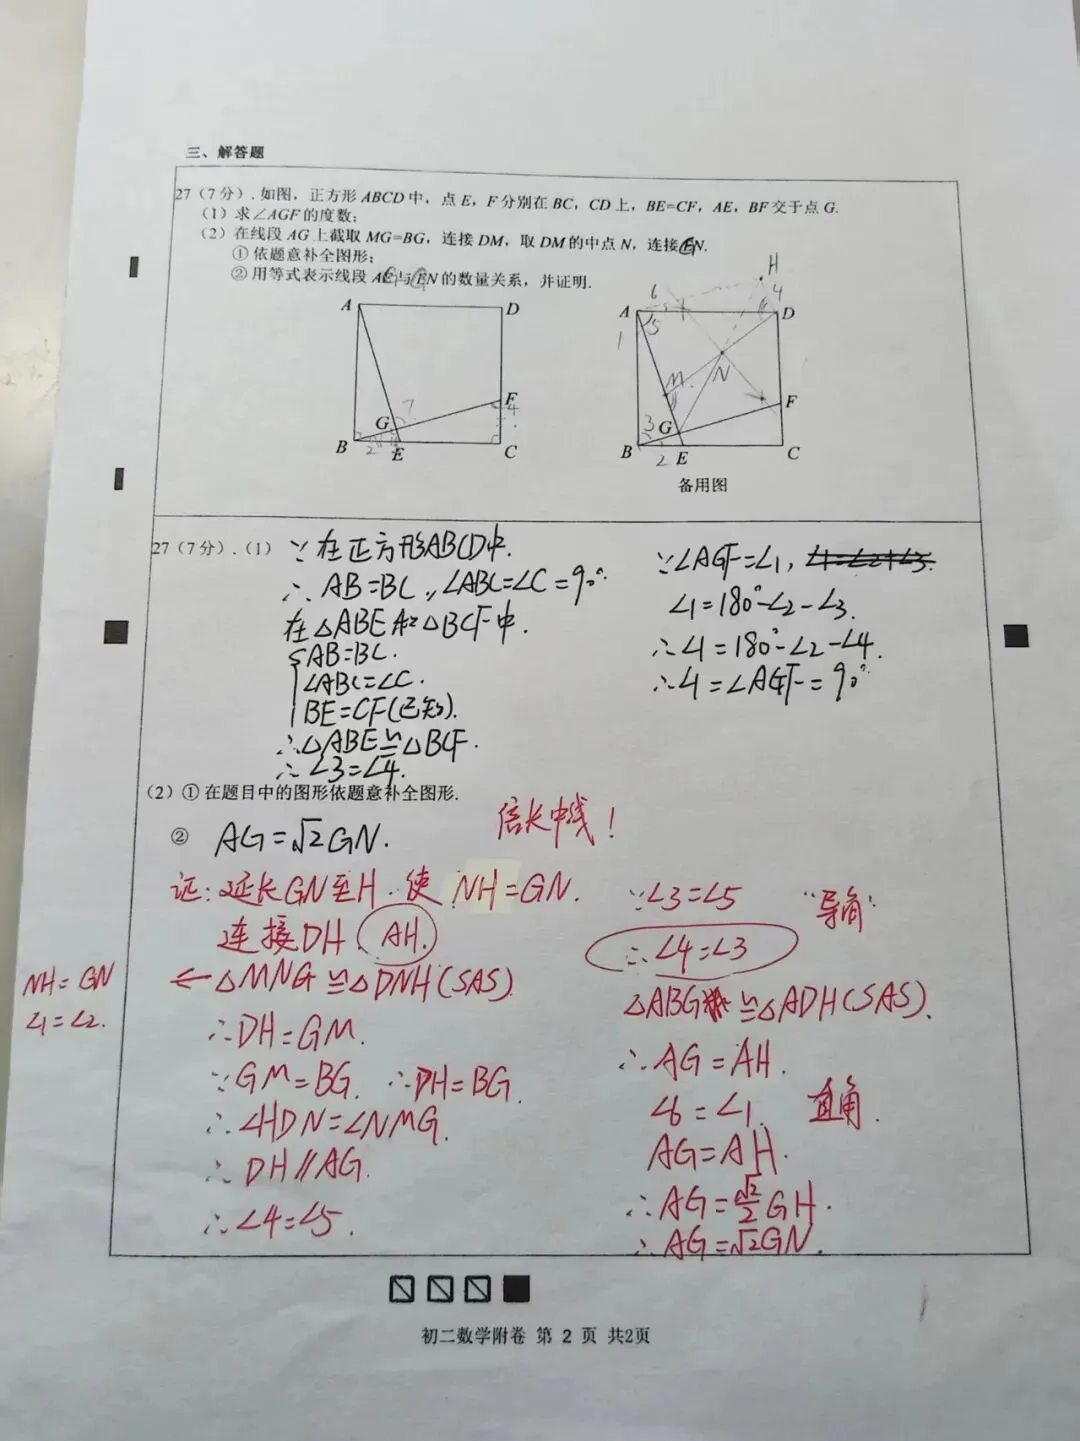 三、解答题
27（7分）. 如图，正方形 ABCD 中，点 E，F 分别在 BC，CD 上，BE=CF，AE，BF 交于点 G.
（1）求∠AGF 的度数；
（2）在线段 AG 上截取 MG=BG，连接 DM，取 DM 的中点 N，连接 GN.
① 依题意补全图形；
② 用等式表示线段 AG 与 GN 的数量关系，并证明.
H
A D
G 7 F 4
B 2 E C
6 4
A 5 D
1
M N
3 G F
B 2 E C
备用图
27（7分）.（1） ∵在正方形ABCD中.
∴AB=BC，∠ABC=∠C=90°.
在△ABE和△BCF中.
AB=BC.
∠ABC=∠C.
BE=CF(已知).
∴△ABE≌△BCF.
∴∠3=∠4.
∵∠AGF=∠1, ∠1=∠2+∠3.
∠1=180°-∠2-∠3.
∴∠1=180°-∠2-∠4.
∴∠1=∠AGF=90°
（2）① 在题目中的图形依题意补全图形.
② AG=√2GN.
倍长中线！
证: 延长GN至H. 使 NH=GN.
连接DH、AH.
NH=GN
∠1=∠2.
←△MNG≌△DNH(SAS)
∴DH=GM.
∵GM=BG. ∴DH=BG.
∴∠HDN=∠NMG.
∴DH∥AG.
∴∠4=∠5.
∵∠3=∠5 "导角"
∴∠4=∠3
△ABG≌△ADH(SAS).
∴AG=AH.
∠6=∠1. 直角.
AG=AH.
∴AG=√2/2GH.
∴AG=√2GN.
初二数学附卷 第 2 页 共2页